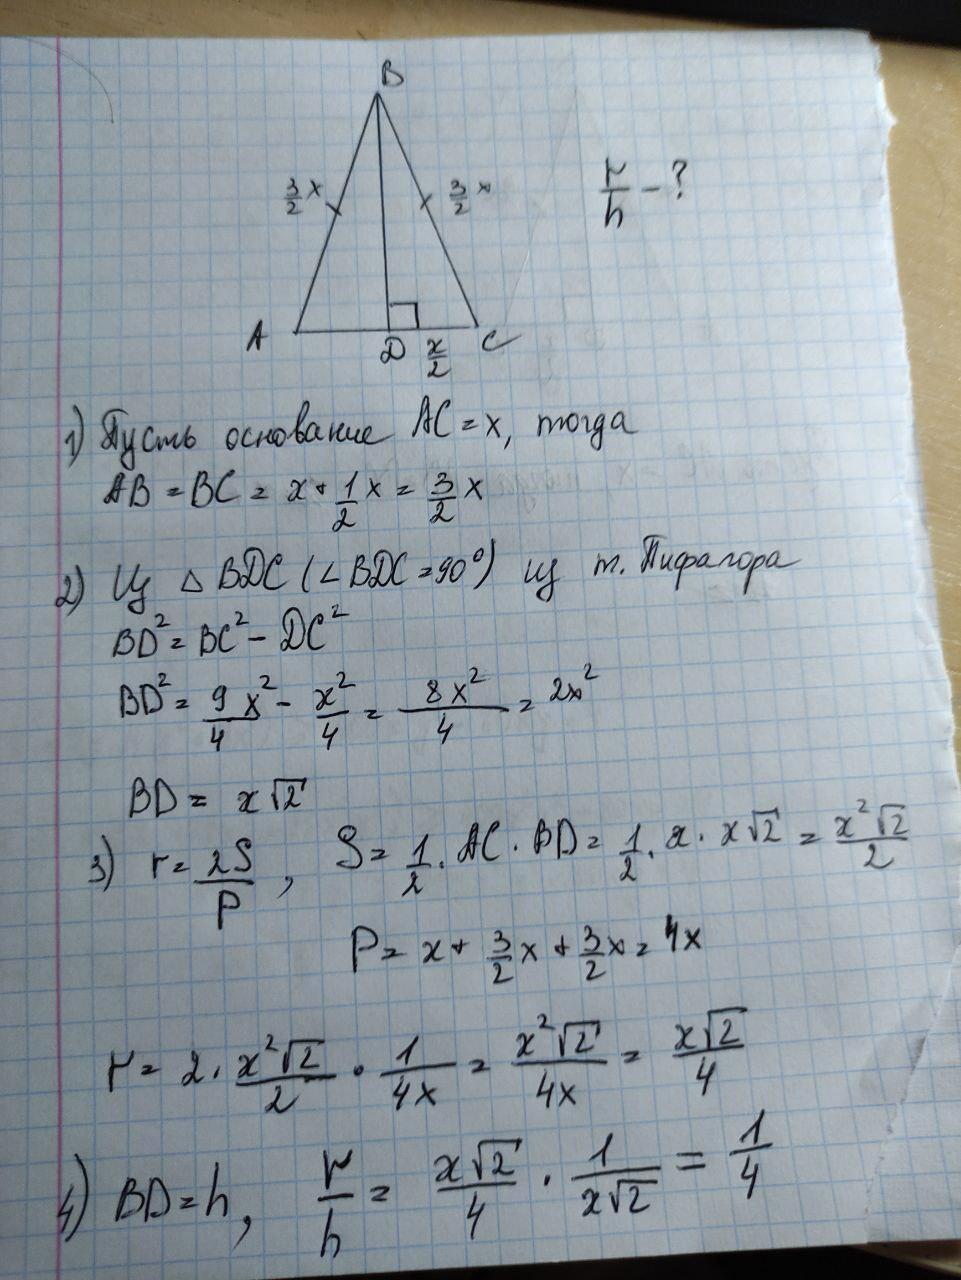 B
3/2 x
3/2 x
r/h - ?
A
D
x/2
C
1) Пусть основание AC = x, тогда
AB = BC = x + 1/2 x = 3/2 x
2) Из △ BDC (∠ BDC = 90°) из т. Пифагора
BD² = BC² - DC²
BD² = 9/4 x² - x²/4 = 8x²/4 = 2x²
BD = x√2
3) r = 2S/P, S = 1/2 · AC · BD = 1/2 · x · x√2 = x²√2/2
P = x + 3/2 x + 3/2 x = 4x
r = 2 · x²√2/2 · 1/4x = x²√2/4x = x√2/4
4) BD = h, r/h = x√2/4 · 1/x√2 = 1/4